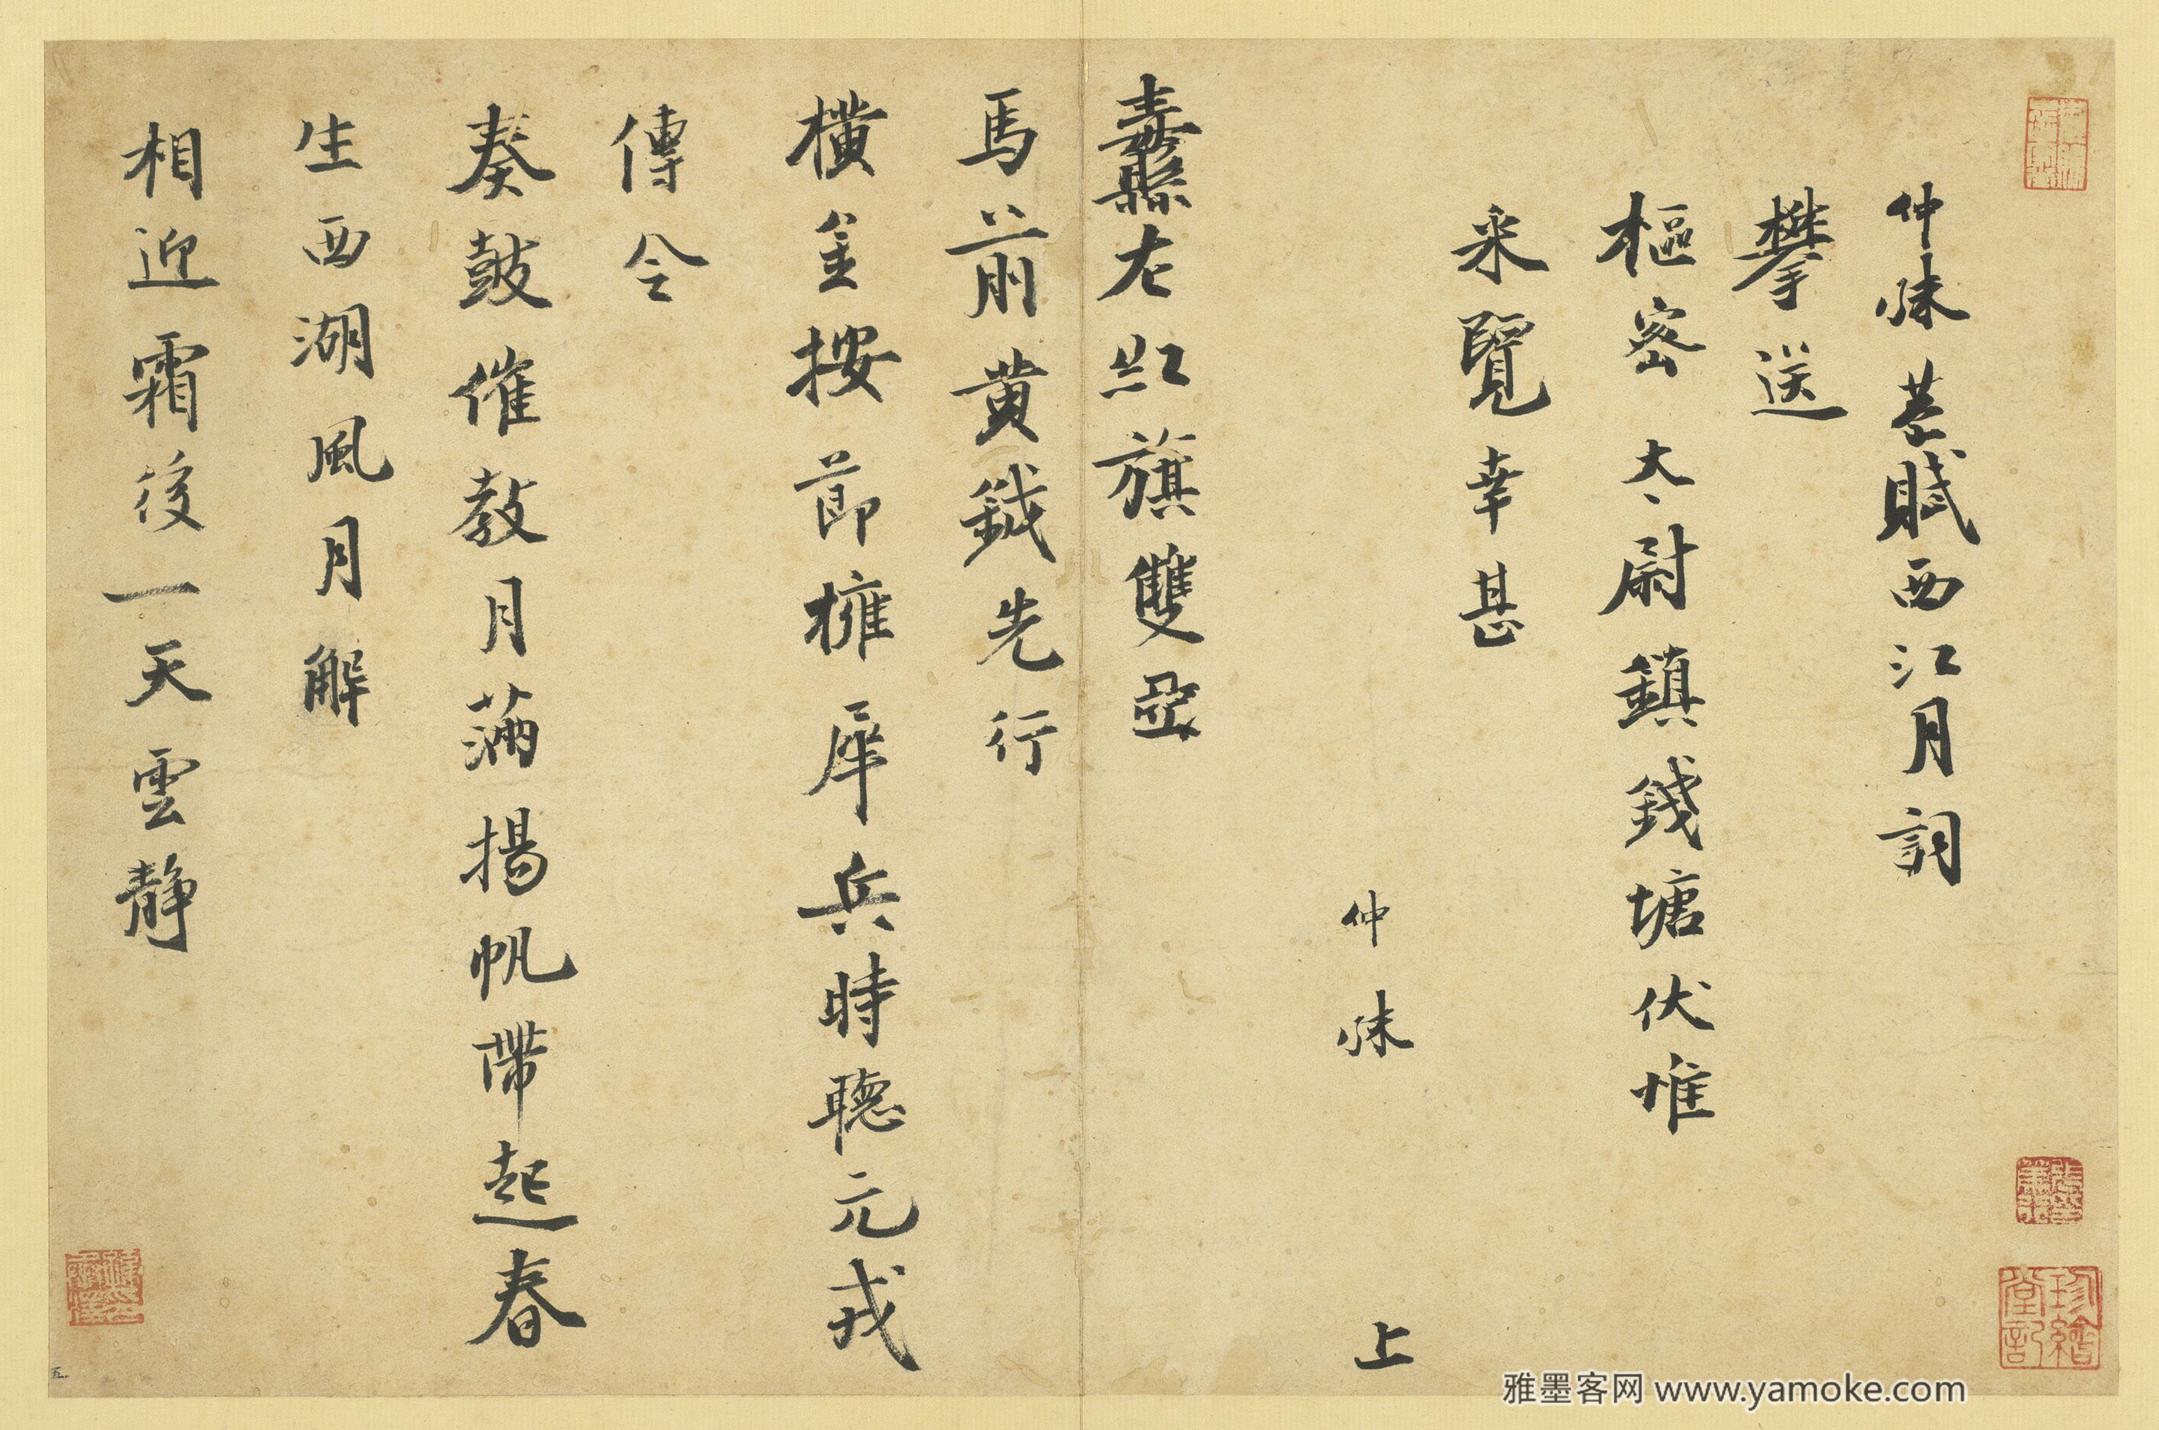 仲殊恭賦西江月詞
攀送
樞密太尉鎮錢塘伏惟
采覽幸甚
仲殊 上
纛左紅旗雙亞
馬前黃鉞先行
橫金按節擁犀兵時聽元戎
傳令
奏鼓催教月滿揚帆帶起春
生西湖風月解
相迎霜後一天雲靜
珍繪堂記
五
雅墨客网 www.yamoke.com